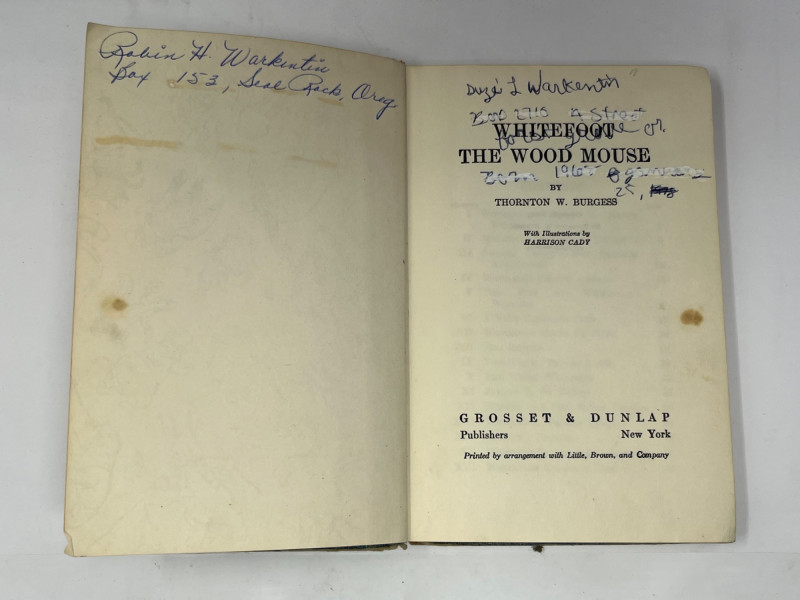 Robin H. Warkentin
Box 153, Seal Rock, Oreg
Suzé L Warkentin
Box 2715
WHITEFOOT
Grove Or.
THE WOOD MOUSE
Born 1965
25,
BY
THORNTON W. BURGESS
With Illustrations by
HARRISON CADY
GROSSET & DUNLAP
Publishers New York
Printed by arrangement with Little, Brown, and Company